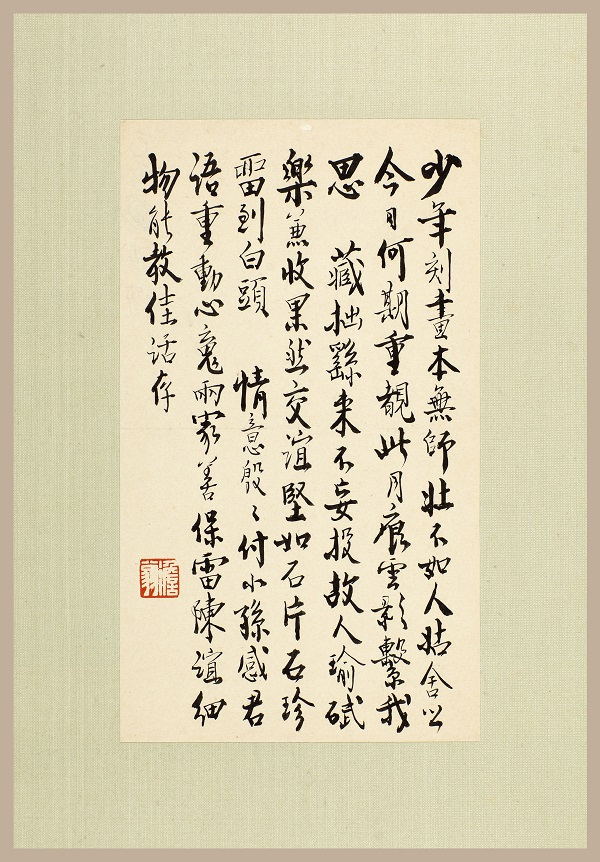 少年刻畫本無師壯不如人姑舍之
今日何期重覩此月痕雲影繫我
思 藏拙繇來不妄投故人瑜碔
樂兼收果然交誼堅如石片石珍
畱到白頭 情意殷〻付小孫感君
語重動心魂兩家善保雷陳誼細
物能教佳話存